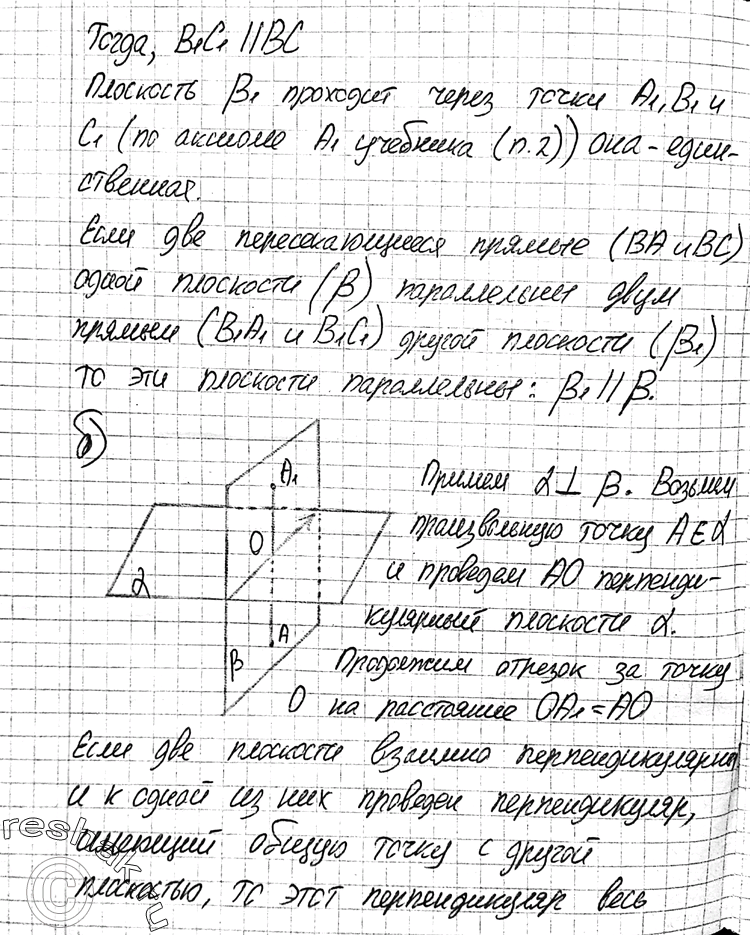 Тогда, B₁C₁ || BC
Плоскость β₁ проходит через точки A₁, B₁ и
C₁ (по аксиоме A₁ учебника (п.2)) она - един-
ственная.
Если две пересекающиеся прямые (BA и BC)
одной плоскости (β) параллельны двум
прямым (B₁A₁ и B₁C₁) другой плоскости (β₁)
то эти плоскости параллельны: β₁ || β.
б)
A₁
O
α
A
β
Примем α ⊥ β. Возьмем
произвольную точку A ∈ α
и проведем AO перпенди-
кулярный плоскости α.
Продолжим отрезок за точку
O на расстояние OA₁ = AO
Если две плоскости взаимно перпендикулярны
и к одной из них проведен перпендикуляр,
имеющий общую точку с другой
плоскостью, то этот перпендикуляр весь
reshak.ru
©